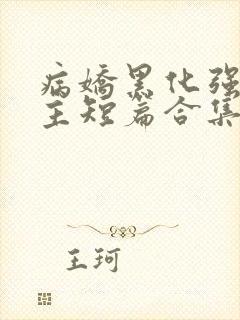 病娇黑化强
主短篇合集
王珂